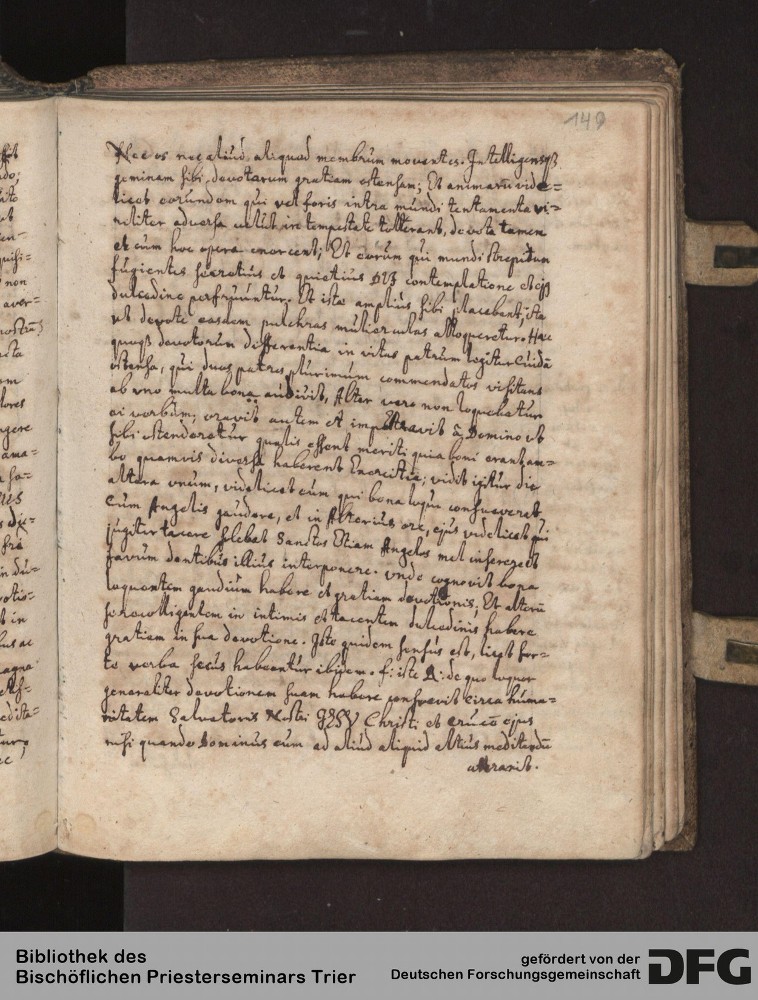 149
Nec os nec aliud aliquod membrum moventes. Intelligensqȝ
geminam sibi devotarum gratiam ostensam; Et animarū vide=
licet eorundem qui vel foris intra mundi tentamenta vi=
riliter adversa velut in tempestate tollerant, devote tamen
et cum hoc opera exorcent; Et eorum qui mundi strepitum
fugientes secretius et quietius contemplatione et ejȝ
dulcedine perfruuntur. Et iste amplius sibi placebant, ista
ut devote easdem pulchras mulierculas alloqueretur. Hæc
quoqȝ devotorum differentia in vitas patrum legitur cuidā
ostensa, qui duos patres plurimum commendatos visitans
ab uno multa bona audivit, Alter vero non loquebatur
ei verbum; oravit autem et impetravit â Domino ut
sibi ostenderetur qualis essent meriti quia boni erant am=
bo quamvis diversa haberent Exercitia; vidit igitur die
altera unum, videlicet eum qui bona loqui consueverat
cum Angelis gaudere, et in Alterius ore, ejus videlicet qui
jugiter tacere solebat Sanctos Etiam Angelos mel inferre et
favum dentibus illius interponere. unde cognovit bona
loquentem gaudium habere et gratiam devotionis, Et alterū
se recolligentem in intimis et tacentem dulcedinis habere
gratiam in sua devotione. Iste quidem sensus est, licet for=
te verba secus habeantur ibidem. f: iste A: de quo loquor
generaliter devotionem suam habere consuevit circa huma=
nitatem Salvatoris Nostri JESV Christi et cruce ejus
nisi quando Dominus eum ad aliud aliquid altius meditandū
attraxit.
Bibliothek des
Bischöflichen Priesterseminars Trier
gefördert von der
Deutschen Forschungsgemeinschaft
DFG